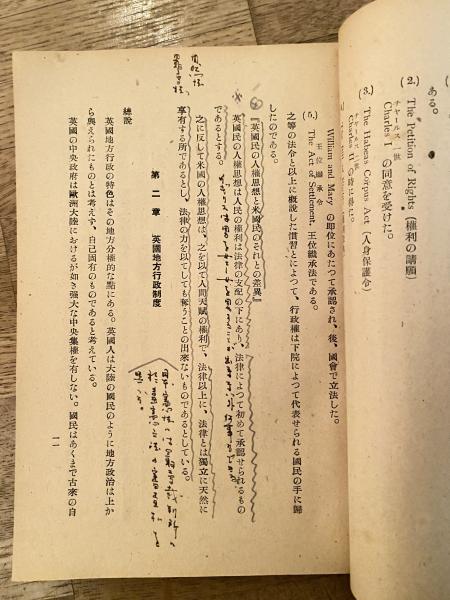 ある。
(2.) The Petition of Rights (權利の請願)
チャールズ一世
Charles I の同意を受けた。
(3.) The Habeas Corpus Act (人身保護令)
チャールズ二世
の時に得た。
William and Mary の即位にあたつて承認され、後、國會で立法した。
王位繼承令
(5.) The Act of Settlement. 王位繼承法である。
之等の法令と以上に概說した慣習とによつて、行政權は下院によつて代表せられる國民の手に歸
したのである。
『英國民の人權思想と米國民のそれとの差異』
英國民の人權思想は人民の權利は法律の支配の下にあり、法律によつて初めて承認せられるもの
であるとする。
之に反して米國の人權思想は、之を以て人間天賦の權利で、法律以上に、法律とは獨立に天然に
享有する所であるとし、法律の力を以てしても奪うことの出來ないものであるとしている。
第二章 英國地方行政制度
總說
英國地方行政の特色はその地方分權的な點にある。英國人は大陸の國民のように地方政治は上か
ら與えられたものとは考えず、自己固有のものであると考えている。
英國の中央政府は歐洲大陸におけるが如き强大な中央集權を有しない。國民はあくまで古來の自
一一